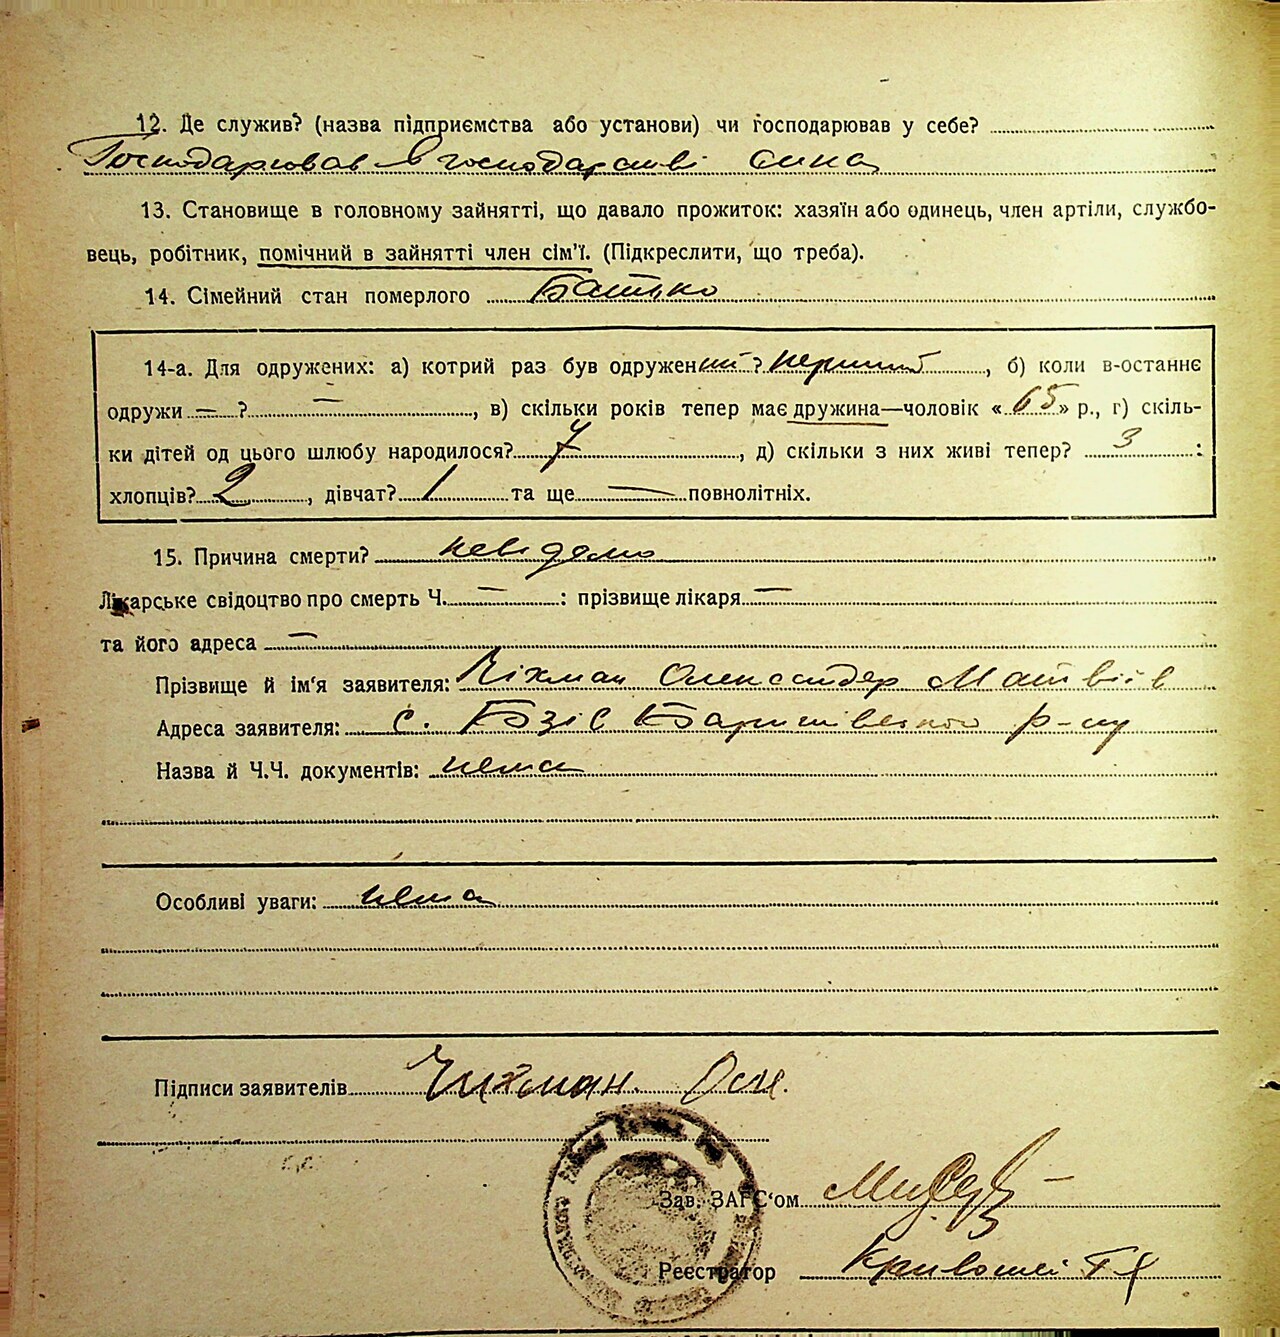 12. Де служив? (назва підприємства або установи) чи господарював у себе?
Господарював в господарстві сина
13. Становище в головному зайнятті, що давало прожиток: хазяїн або одинець, член артіли, службо-
вець, робітник, помічний в зайнятті член сім'ї. (Підкреслити, що треба).
14. Сімейний стан померлого Батько
14-а. Для одружених: а) котрий раз був одружений? перший, б) коли в-останнє
одружи — ? —, в) скільки років тепер має дружина—чоловік « 65 » р., г) скіль-
ки дітей од цього шлюбу народилося? 7, д) скільки з них живі тепер? 3 :
хлопців? 2, дівчат? 1 та ще — повнолітніх.
15. Причина смерти? невідомо
Лікарське свідоцтво про смерть Ч. — : прізвище лікаря —
та його адреса —
Прізвище й ім'я заявителя: Чіхман Олександер Матвіїв
Адреса заявителя: с. Бзів Баришівського р-ну
Назва й Ч.Ч. документів: нема
Особливі уваги: нема
Підписи заявителів Чихман
Зав. ЗАГС'ом
Реєстратор Кривошей